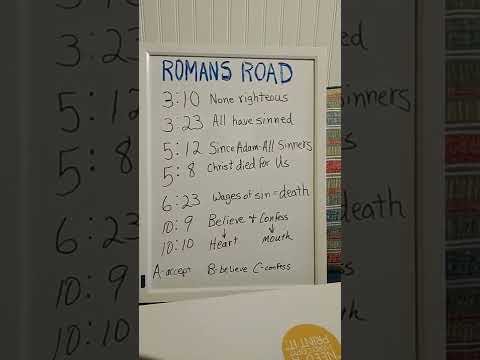 ROMANS ROAD
3:10 None righteous
3:23 All have sinned
5:12 Since Adam-All Sinners
5:8 Christ died for Us
6:23 Wages of sin = death
10:9 Believe + Confess
↓ ↓
10:10 Heart mouth
A-accept B-believe C-confess
PRINT IT
3:23
5:12
5:8
6:23
10:9
10:10
inners
death